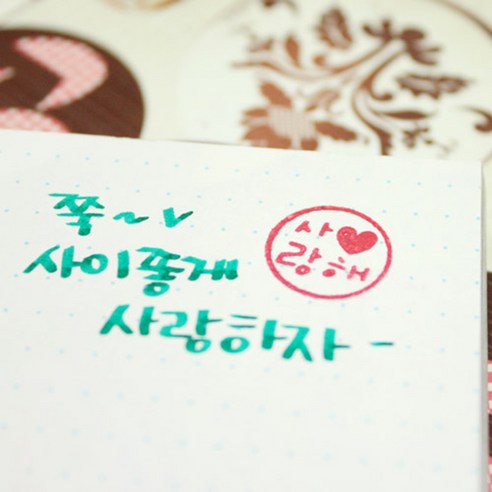 쭉~
사이좋게
사랑하자-
사♥
랑해